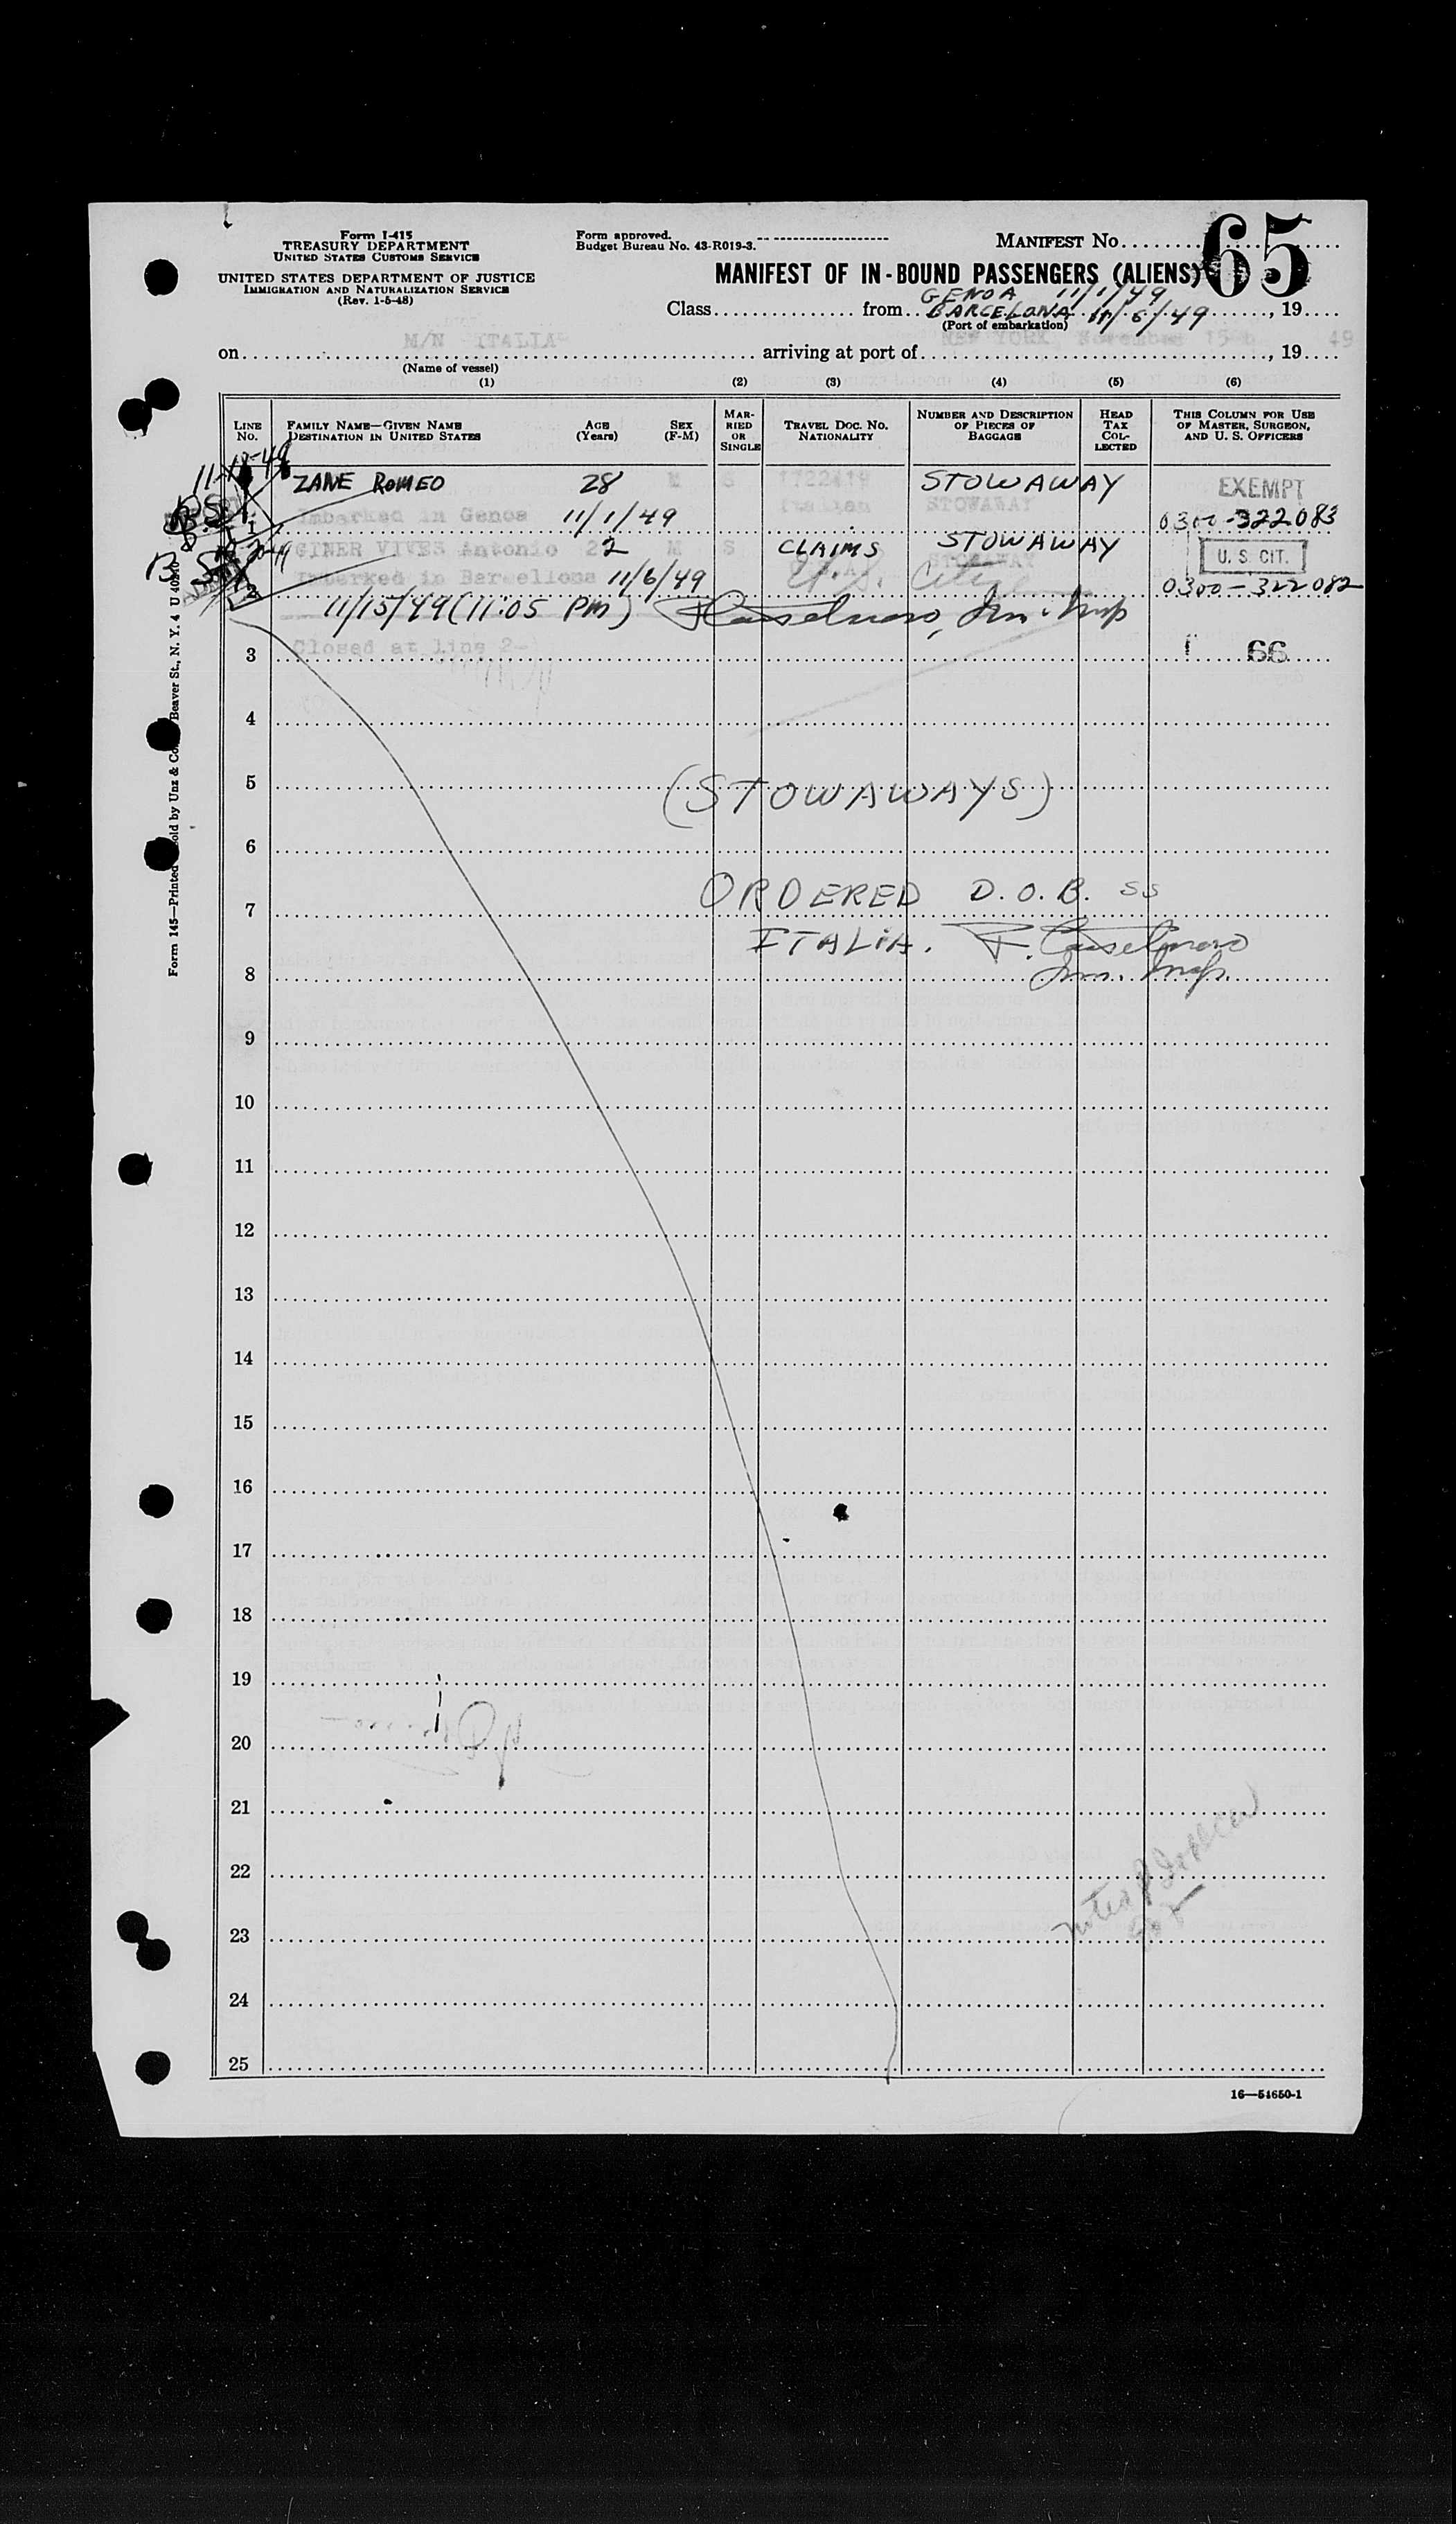 Form I-415
TREASURY DEPARTMENT
UNITED STATES CUSTOMS SERVICE
UNITED STATES DEPARTMENT OF JUSTICE
IMMIGRATION AND NATURALIZATION SERVICE
(Rev. 1-5-48)
Form approved.
Budget Bureau No. 43-R019-3.
MANIFEST No. 65
MANIFEST OF IN-BOUND PASSENGERS (ALIENS)
GENOA 11/1/49
Class from BARCELONA 11/6/49, 19
(Port of embarkation)
on M/N ITALIA arriving at port of NEW YORK, November 15th, 19 49
(Name of vessel)
(1) (2) (3) (4) (5) (6)
LINE No.
FAMILY NAME—GIVEN NAME DESTINATION IN UNITED STATES
AGE (Years)
SEX (F-M)
MARRIED OR SINGLE
TRAVEL DOC. No. NATIONALITY
NUMBER AND DESCRIPTION OF PIECES OF BAGGAGE
HEAD TAX COLLECTED
THIS COLUMN FOR USE OF MASTER, SURGEON, AND U. S. OFFICERS
ZANE ROMEO 28 M S 1722419 STOWAWAY EXEMPT
1 Imbarked in Genoa 11/1/49 Italian STOWAWAY 0300-322083
GINER VIVES Antonio 22 M S CLAIMS STOWAWAY U. S. CIT.
2 Imbarked in Barcellona 11/6/49 U.S. Citizen STOWAWAY 0300-322082
11/15/49 (11:05 PM) Imm. Insp
Closed at line 2-
3 66
4
5 (STOWAWAYS)
6
7 ORDERED D.O.B. SS
8 ITALIA.
Imm. Insp.
9
10
11
12
13
14
15
16
17
18
19
20
21
22
23
24
25
16—54650-1
Form 145—Printed Sold by Unz & Co. Beaver St., N. Y. 4